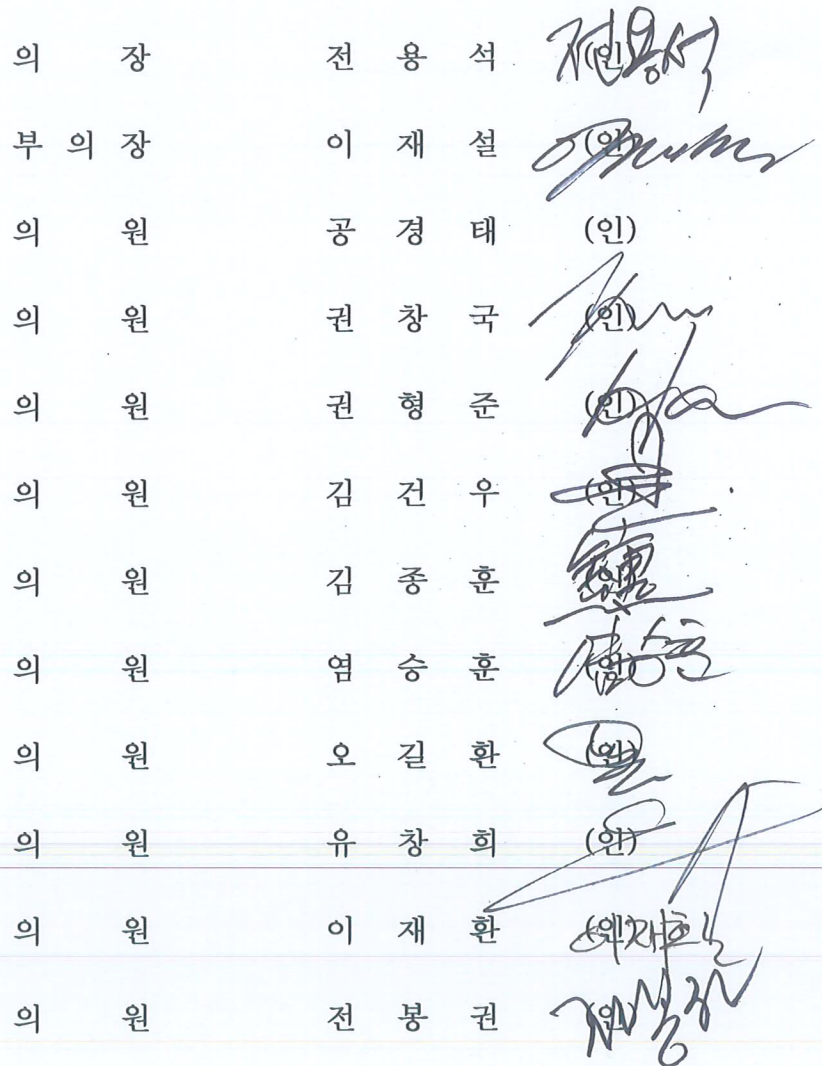 의 장 전 용 석 (인) 전용석
부 의 장 이 재 설 (인)
의 원 공 경 태 (인)
의 원 권 창 국 (인)
의 원 권 형 준 (인)
의 원 김 건 우 (인)
의 원 김 종 훈 (인)
의 원 염 승 훈 (인)
의 원 오 길 환 (인)
의 원 유 창 희 (인)
의 원 이 재 환 (인)
의 원 전 봉 권 (인)